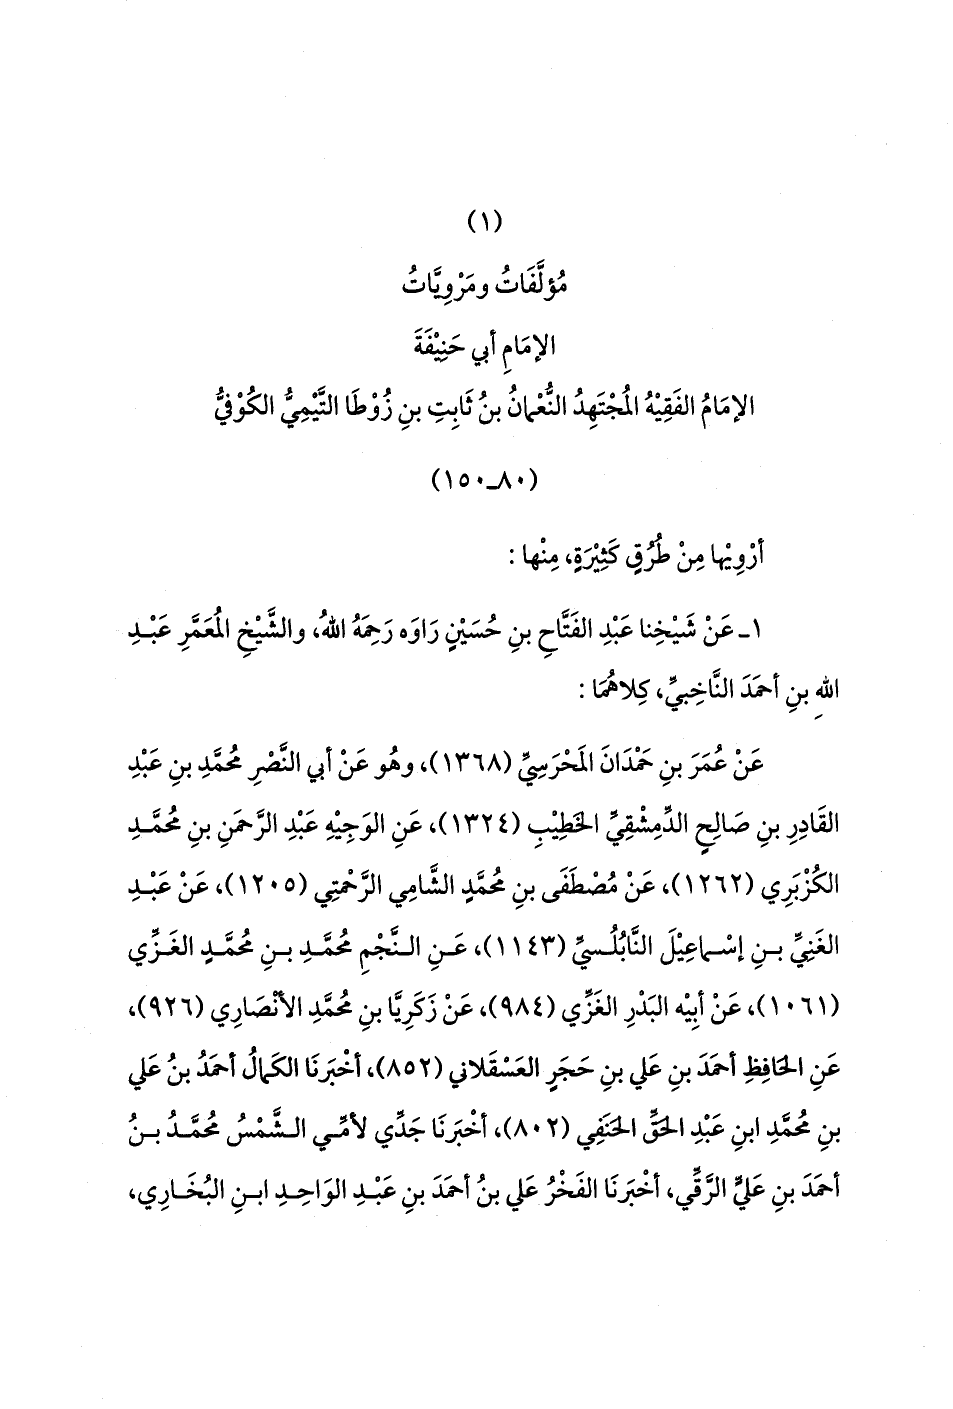 (١)
مُؤلَّفَاتُ ومَرْوِيَّاتُ
الإمَامِ أبي حَنِيْفَةَ
الإمَامُ الفَقِيْهُ المُجْتَهِدُ النُّعْمانُ بنُ ثَابِتِ بنِ زُوْطَا التَّيْمِيُّ الكُوْفيُّ
(٨٠ـ١٥٠)
أرْوِيْها مِنْ طُرُقٍ كَثِيْرَةٍ، مِنْها :
١ـ عَنْ شَيْخِنا عَبْدِ الفَتَّاحِ بنِ حُسَيْنٍ رَاوَه رَحِمَهُ اللهُ، والشَّيْخِ المُعَمَّرِ عَبْـدِ
اللهِ بنِ أحمَدَ النَّاخِبيِّ، كِلاهُمَا :
عَنْ عُمَرَ بنِ حَمْدَانَ المَحْرَسِيِّ (١٣٦٨)، وهُو عَنْ أبي النَّصْرِ محُمَّدِ بنِ عَبْدِ
القَادِرِ بنِ صَالِحٍ الدِّمِشْقِيِّ الخَطِيْبِ (١٣٢٤)، عَنِ الوَجِيْهِ عَبْدِ الرَّحمَنِ بنِ محُمَّـدِ
الكُزْبَرِي (١٢٦٢)، عَنْ مُصْطَفَى بنِ محُمَّدٍ الشَّامِي الرَّحْمتِي (١٢٠٥)، عَنْ عَبْـدِ
الغَنِيِّ بـنِ إسْـماعِيْلَ النَّابُلُـسيِّ (١١٤٣)، عَـنِ الـنَّجْمِ محُمَّـدِ بـنِ محُمَّـدٍ الغَـزِّي
(١٠٦١)، عَنْ أبِيْه البَدْرِ الغَزِّي (٩٨٤)، عَنْ زَكَرِيَّا بنِ محُمَّدِ الأنْصَارِي (٩٢٦)،
عَنِ الحَافِظِ أحمَدَ بنِ عَلي بنِ حَجَرٍ العَسْقَلاني (٨٥٢)، أخْبَرنَا الكَمالُ أحمَدُ بنُ عَلي
بنِ محُمَّدِ ابنِ عَبْدِ الحَقِّ الحَنَفِي (٨٠٢)، أخْبَرَنَا جَدِّي لأمِّـي الـشَّمْسُ محُمَّـدُ بـنُ
أحمَدَ بنِ عَليٍّ الرَّقِّي، أخْبَرَنَا الفَخْرُ عَلي بنُ أحمَدَ بنِ عَبْـدِ الوَاحِـدِ ابـنِ البُخَـارِي،